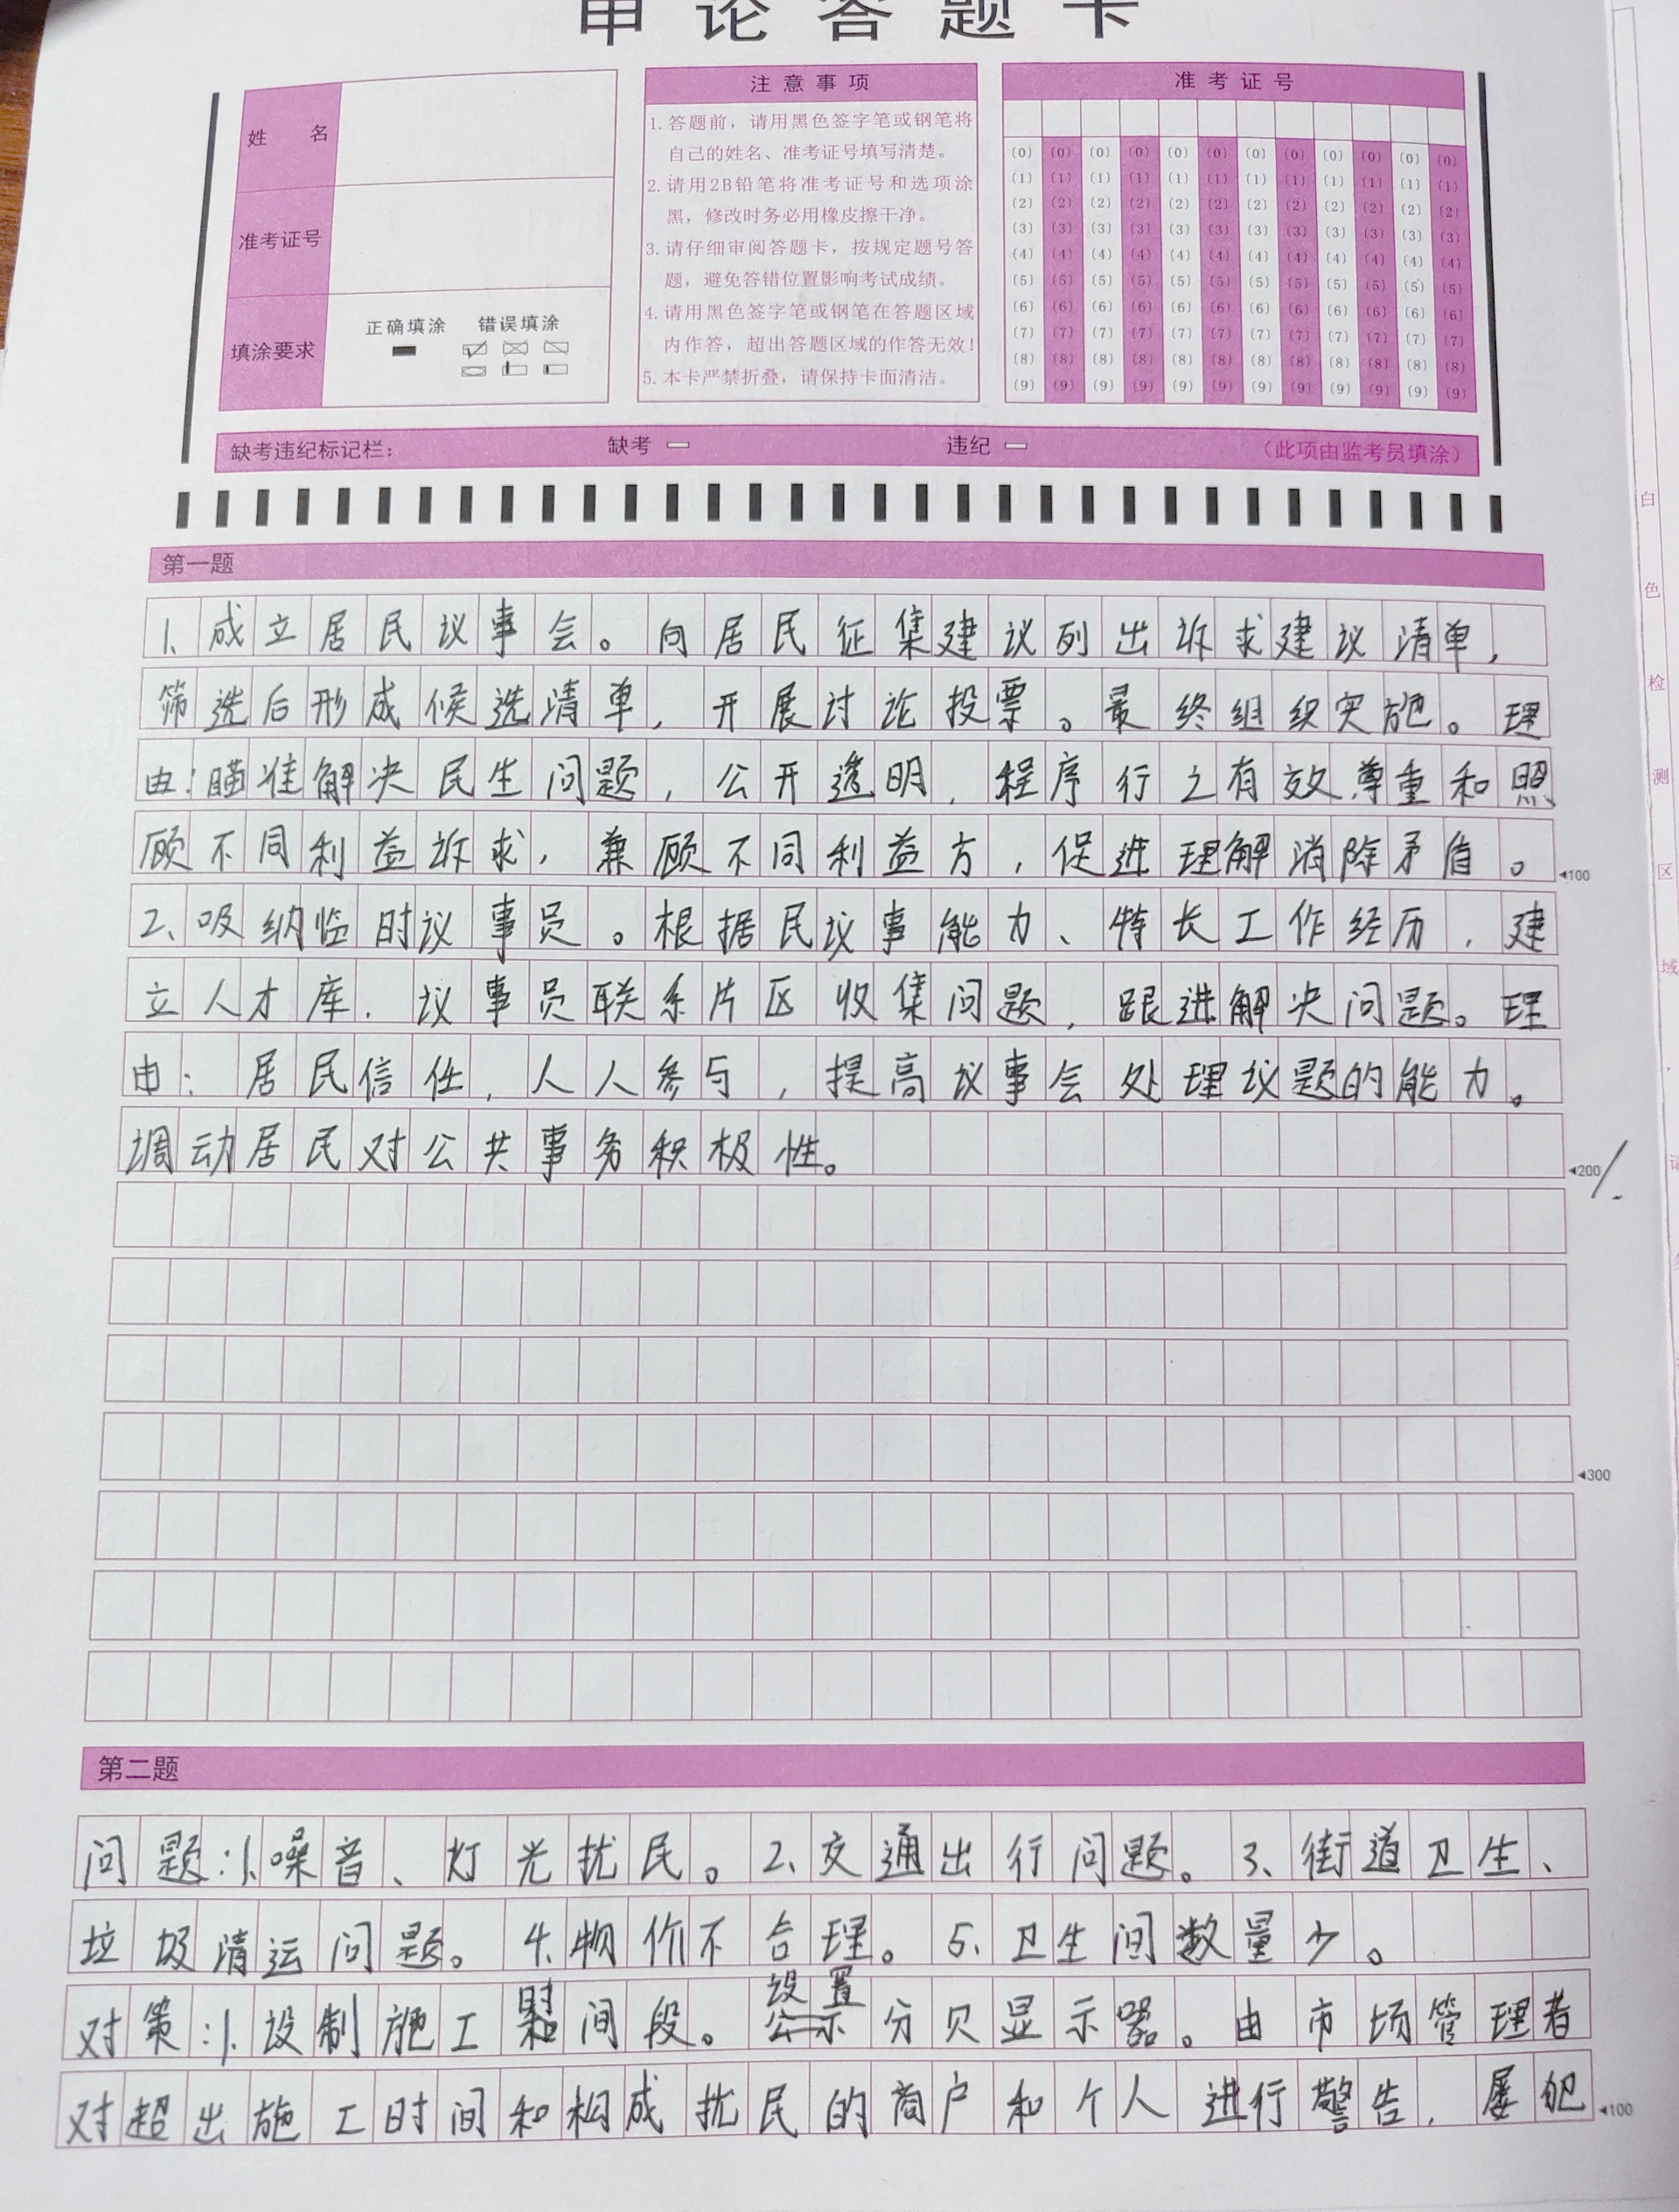 申论答题卡
姓名
准考证号
填涂要求
正确填涂 错误填涂
注意事项
1. 答题前，请用黑色签字笔或钢笔将
自己的姓名、准考证号填写清楚。
2. 请用2B铅笔将准考证号和选项涂
黑，修改时务必用橡皮擦干净。
3. 请仔细审阅答题卡，按规定题号答
题，避免答错位置影响考试成绩。
4. 请用黑色签字笔或钢笔在答题区域
内作答，超出答题区域的作答无效！
5. 本卡严禁折叠，请保持卡面清洁。
准考证号
(0) (0) (0) (0) (0) (0) (0) (0) (0) (0) (0) (0)
(1) (1) (1) (1) (1) (1) (1) (1) (1) (1) (1) (1)
(2) (2) (2) (2) (2) (2) (2) (2) (2) (2) (2) (2)
(3) (3) (3) (3) (3) (3) (3) (3) (3) (3) (3) (3)
(4) (4) (4) (4) (4) (4) (4) (4) (4) (4) (4) (4)
(5) (5) (5) (5) (5) (5) (5) (5) (5) (5) (5) (5)
(6) (6) (6) (6) (6) (6) (6) (6) (6) (6) (6) (6)
(7) (7) (7) (7) (7) (7) (7) (7) (7) (7) (7) (7)
(8) (8) (8) (8) (8) (8) (8) (8) (8) (8) (8) (8)
(9) (9) (9) (9) (9) (9) (9) (9) (9) (9) (9) (9)
缺考违纪标记栏： 缺考 违纪 （此项由监考员填涂）
第一题
1、成立居民议事会。向居民征集建议列出诉求建议清单，
筛选后形成候选清单，开展讨论投票。最终组织实施。理
由：瞄准解决民生问题，公开透明，程序行之有效尊重和照
顾不同利益诉求，兼顾不同利益方，促进理解消除矛盾。
◄100
2、吸纳临时议事员。根据民议事能力、特长工作经历，建
立人才库，议事员联系片区收集问题，跟进解决问题。理
由：居民信任，人人参与，提高议事会处理议题的能力。
调动居民对公共事务积极性。
◄200
◄300
第二题
问题：1、噪音、灯光扰民。2、交通出行问题。3、街道卫生、
垃圾清运问题。4、物价不合理。5、卫生间数量少。
对策：1、设制施工时间段。设置分贝显示器。由市场管理者
对超出施工时间和构成扰民的商户和个人进行警告，屡犯
◄100
白色检测区域，请